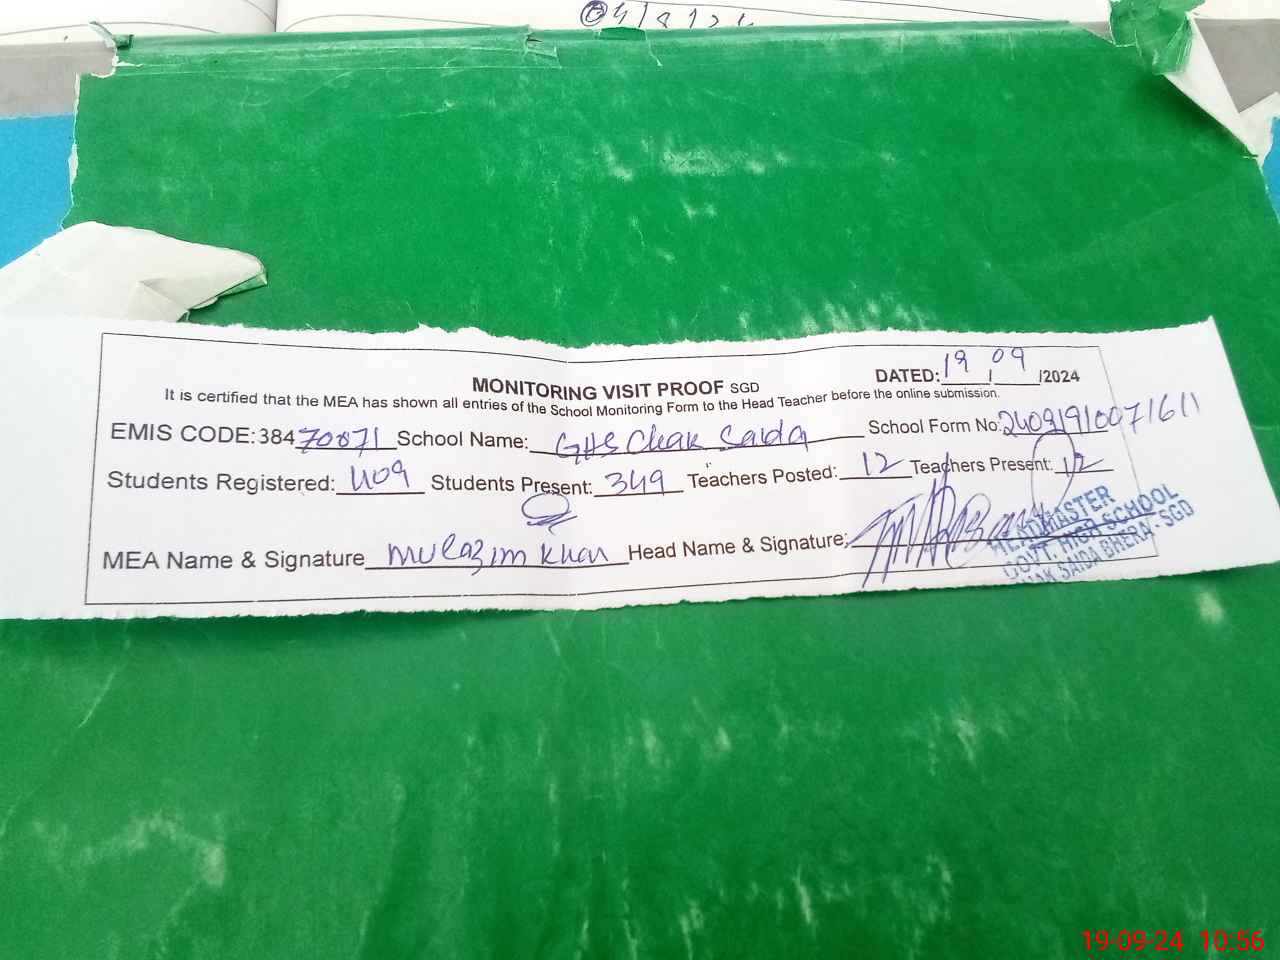 MONITORING VISIT PROOF SGD
DATED: 19/09/2024
It is certified that the MEA has shown all entries of the School Monitoring Form to the Head Teacher before the online submission.
EMIS CODE: 38470071 School Name: GHS Chak Saida School Form No: 2409191007161 1
Students Registered: 409 Students Present: 349 Teachers Posted: 12 Teachers Present: 12
MEA Name & Signature Mulazim Khan Head Name & Signature:
HEADMASTER
GOVT. HIGH SCHOOL
CHAK SAIDA BHERA-SGD
19-09-24 10:56